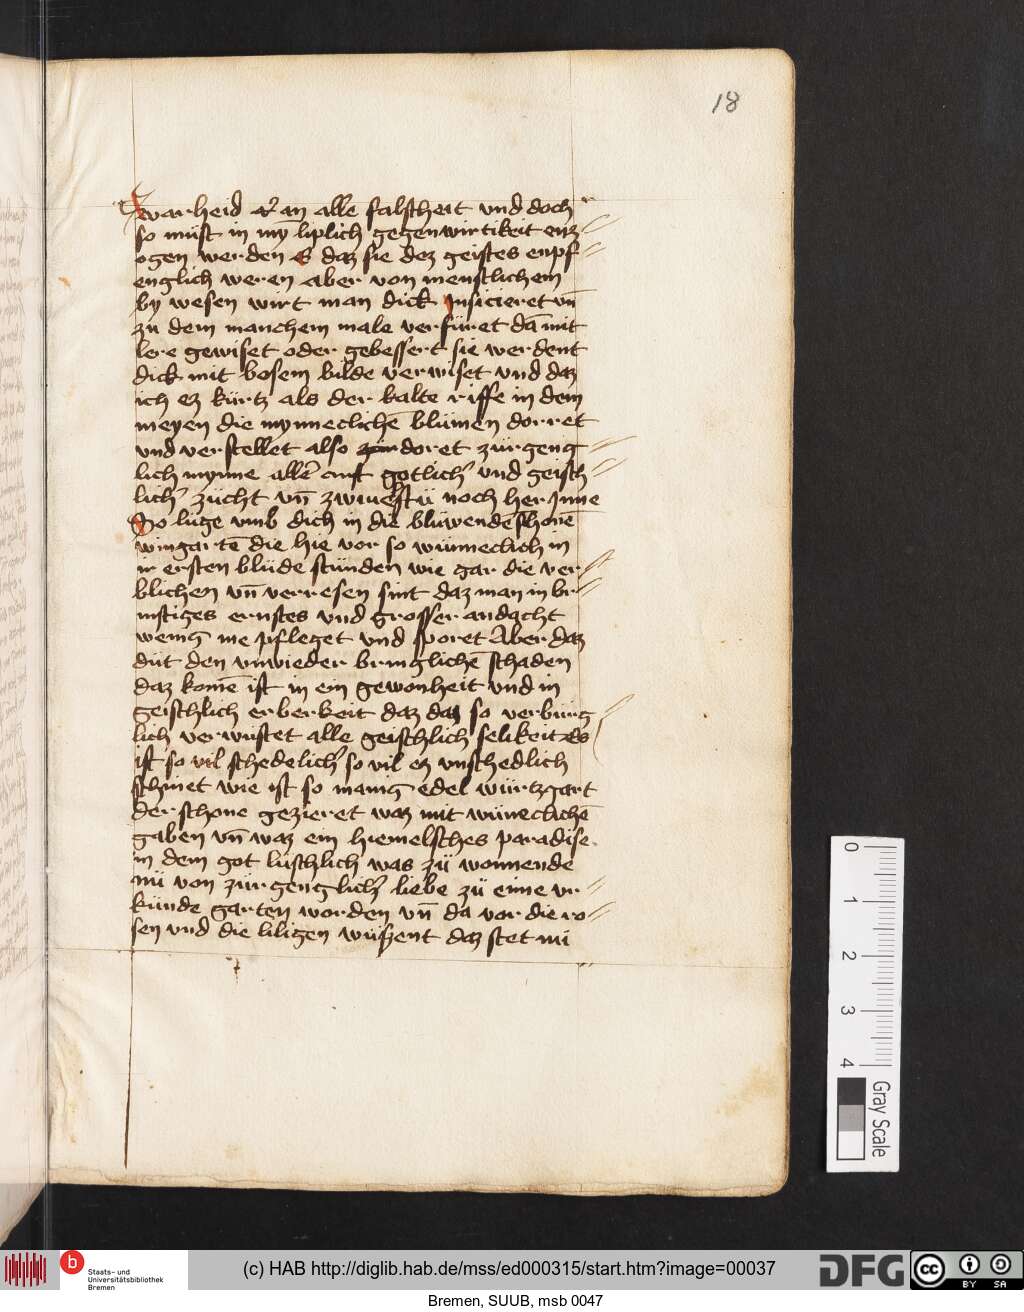 18
warheid er an alle falscheit vnd doch
so müst in my̅ liplich gegenwirtikeit enz
ogen werden es daz sie dez geistes enpf
englich weren aber von menslichem
by wesen wirt man dick Insicieret vn̅
zu dem manchem male verfüret da̅ mit
lere gewiset oder gebessert sie werdent
dick mit bosem bilde verwiset vnd daz
ich ez kürtz als der kalte riffe in dem
meyen die mynnecliche̅ blümen dorret
vnd verstellet also doret zürgeng
lich mynne gotlich vnd geisch
lich zücht vn̅ noch her Inne
So luge vmb dich in die bluwende̅ schone̅
wingarte̅ die hie vor so wünneclich in
ir ersten blüde stünden wie gar die ver
blichen vn̅ verresen sint daz man in br
instiges ernstes vnd grosser andacht
wenig me pfleget vnd sporet Aber daz
düt den vnwieder bringliche̅ schaden
daz kome̅ ist in ein gewonheit vnd in
geischlich erberkeit daz daz so verbürg
lich verwustet alle geischlich selikeit Es
ist so vil schedelich so vil ez vnschedlich
schinet wie ist so manig edel würtzgart
der schone gezieret waz mit wünecliche̅
gaben vn̅ waz ein hiemelsches paradise
in dem got luschlich was zü wonnende
nü von zürgenglich liebe zü eime vr
künde garten worden vn̅ da vor die ro
sen vnd die liligen wüßent daz stet nü
0
1
2
3
4
Gray Scale
b
Staats- und
Universitätsbibliothek
Bremen
(c) HAB http://diglib.hab.de/mss/ed000315/start.htm?image=00037
DFG
cc
BY SA
Bremen, SUUB, msb 0047